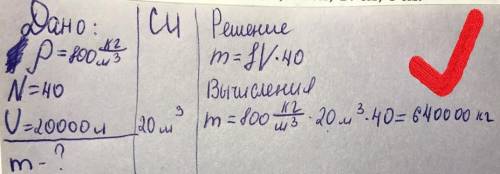 Дано:
ρ=800 кг/м³
N=40
V=20000л
m-?
СИ
20м³
Решение
m=ρV·40
Вычисления
m=800 кг/м³·20м³·40=640000 кг